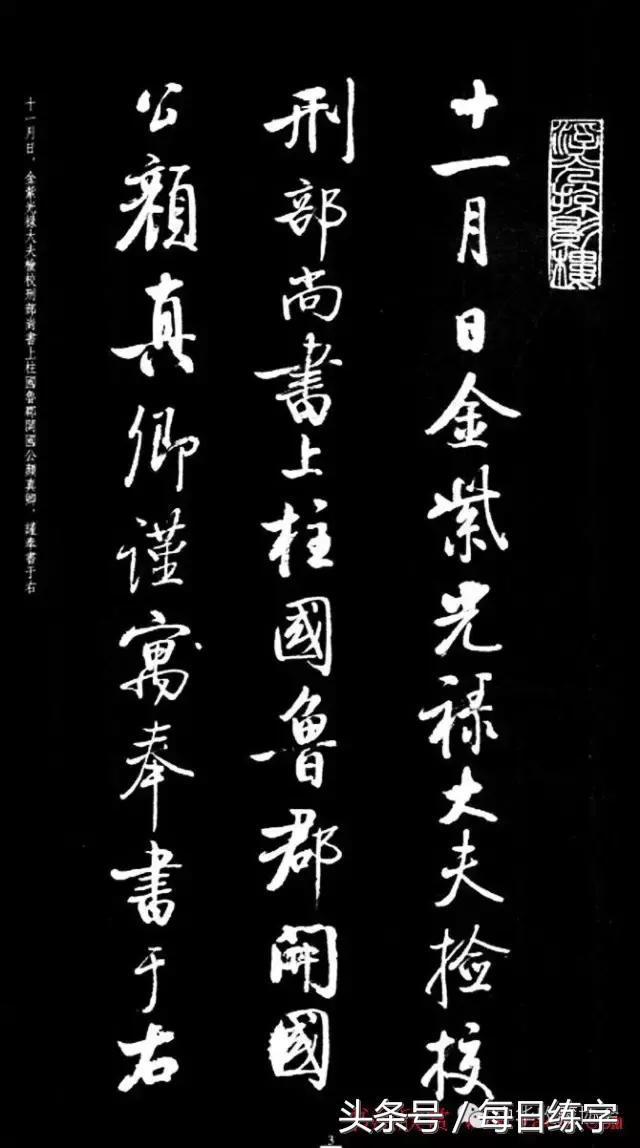 十一月日金紫光禄大夫捡挍
刑部尚書上柱國魯郡開國
公顏真卿謹寓奉書于右
十一月日，金紫光禄大夫檢校刑部尚書上柱國魯郡開國公顏真卿，謹奉書于右
3
头条号 / 每日练字